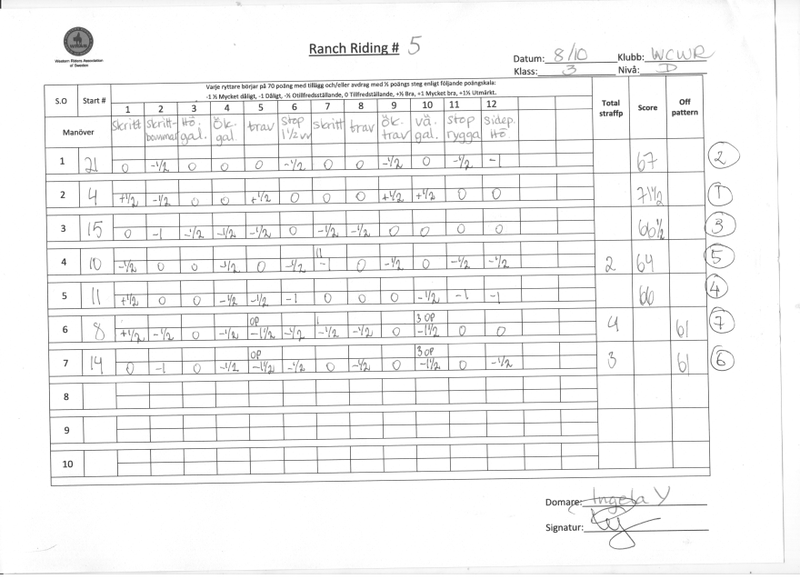 Western Riders Association
of Sweden
Ranch Riding # 5
Datum: 8/10 Klubb: WCWR
Klass: 3 Nivå: D
Varje ryttare börjar på 70 poäng med tillägg och/eller avdrag med ½ poängs steg enligt följande poängskala:
-1 ½ Mycket dåligt, -1 Dåligt, -½ Otillfredställande, 0 Tillfredsställande, +½ Bra, +1 Mycket bra, +1½ Utmärkt.
S.O Start # 1 2 3 4 5 6 7 8 9 10 11 12 Total straffp Score Off pattern
Manöver Skritt Skritt-bommar Hö. gal. Ök. gal. trav Stop 1½ vv Skritt trav ök. trav vä. gal. stop rygga Sidep. Hö
1 21 0 -½ 0 0 0 -½ 0 0 -½ 0 -½ -1 67 2
2 4 +½ -½ 0 0 +½ 0 0 0 +½ +½ 0 0 71½ 1
3 15 0 -1 -½ -½ -½ 0 -½ -½ 0 0 0 0 66½ 3
4 10 -½ 0 0 -½ 0 -½ -1 0 -½ 0 -½ -½ 2 64 5
5 11 +½ 0 0 -½ -½ -1 0 0 0 -½ -1 -1 66 4
OP 3 OP
6 8 +½ -½ 0 -½ -1½ -½ -½ -½ 0 -1½ 0 0 4 61 7
OP 3 OP
7 14 0 -1 0 -½ -1½ -½ 0 -½ 0 -1½ 0 -½ 3 61 6
8
9
10
Domare: Ingela Y
Signatur: